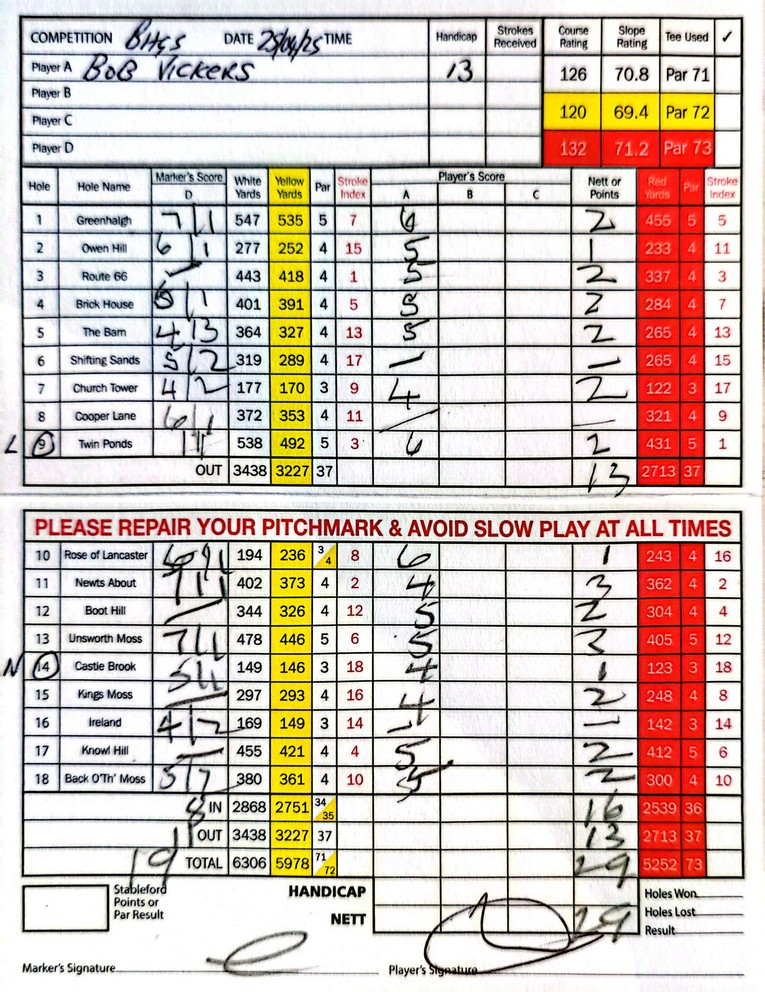 COMPETITION BHGS DATE 25/04/25 TIME Handicap Strokes Received Course Rating Slope Rating Tee Used ✓
Player A BOB VICKERS 13 126 70.8 Par 71
Player B
Player C 120 69.4 Par 72
Player D 132 71.2 Par 73
Hole Hole Name Marker's Score D White Yards Yellow Yards Par Stroke Index Player's Score A B C Nett or Points Red Yards Par Stroke Index
1 Greenhalgh 7/1 547 535 5 7 6 2 455 5 5
2 Owen Hill 6/1 277 252 4 15 5 1 233 4 11
3 Route 66 443 418 4 1 5 2 337 4 3
4 Brick House /1 401 391 4 5 5 2 284 4 7
5 The Barn 4/3 364 327 4 13 5 2 265 4 13
6 Shifting Sands 5/2 319 289 4 17 — — 265 4 15
7 Church Tower 4/2 177 170 3 9 4 2 122 3 17
8 Cooper Lane 6/1 372 353 4 11 — — 321 4 9
L 9 Twin Ponds 538 492 5 3 6 2 431 5 1
OUT 3438 3227 37 13 2713 37
PLEASE REPAIR YOUR PITCHMARK & AVOID SLOW PLAY AT ALL TIMES
10 Rose of Lancaster 194 236 3/4 8 6 1 243 4 16
11 Newts About 402 373 4 2 4 3 362 4 2
12 Boot Hill — 344 326 4 12 5 2 304 4 4
13 Unsworth Moss 7/1 478 446 5 6 5 3 405 5 12
N 14 Castle Brook 5/1 149 146 3 18 4 1 123 3 18
15 Kings Moss — 297 293 4 16 4 2 248 4 8
16 Ireland 4/2 169 149 3 14 — — 142 3 14
17 Knowl Hill — 455 421 4 4 5 2 412 5 6
18 Back O'Th' Moss 5/2 380 361 4 10 5 2 300 4 10
8 IN 2868 2751 34/35 16 2539 36
11 OUT 3438 3227 37 13 2713 37
19 TOTAL 6306 5978 71/72 29 5252 73
Stableford Points or Par Result
HANDICAP
NETT 29
Holes Won
Holes Lost
Result
Marker's Signature Player's Signature